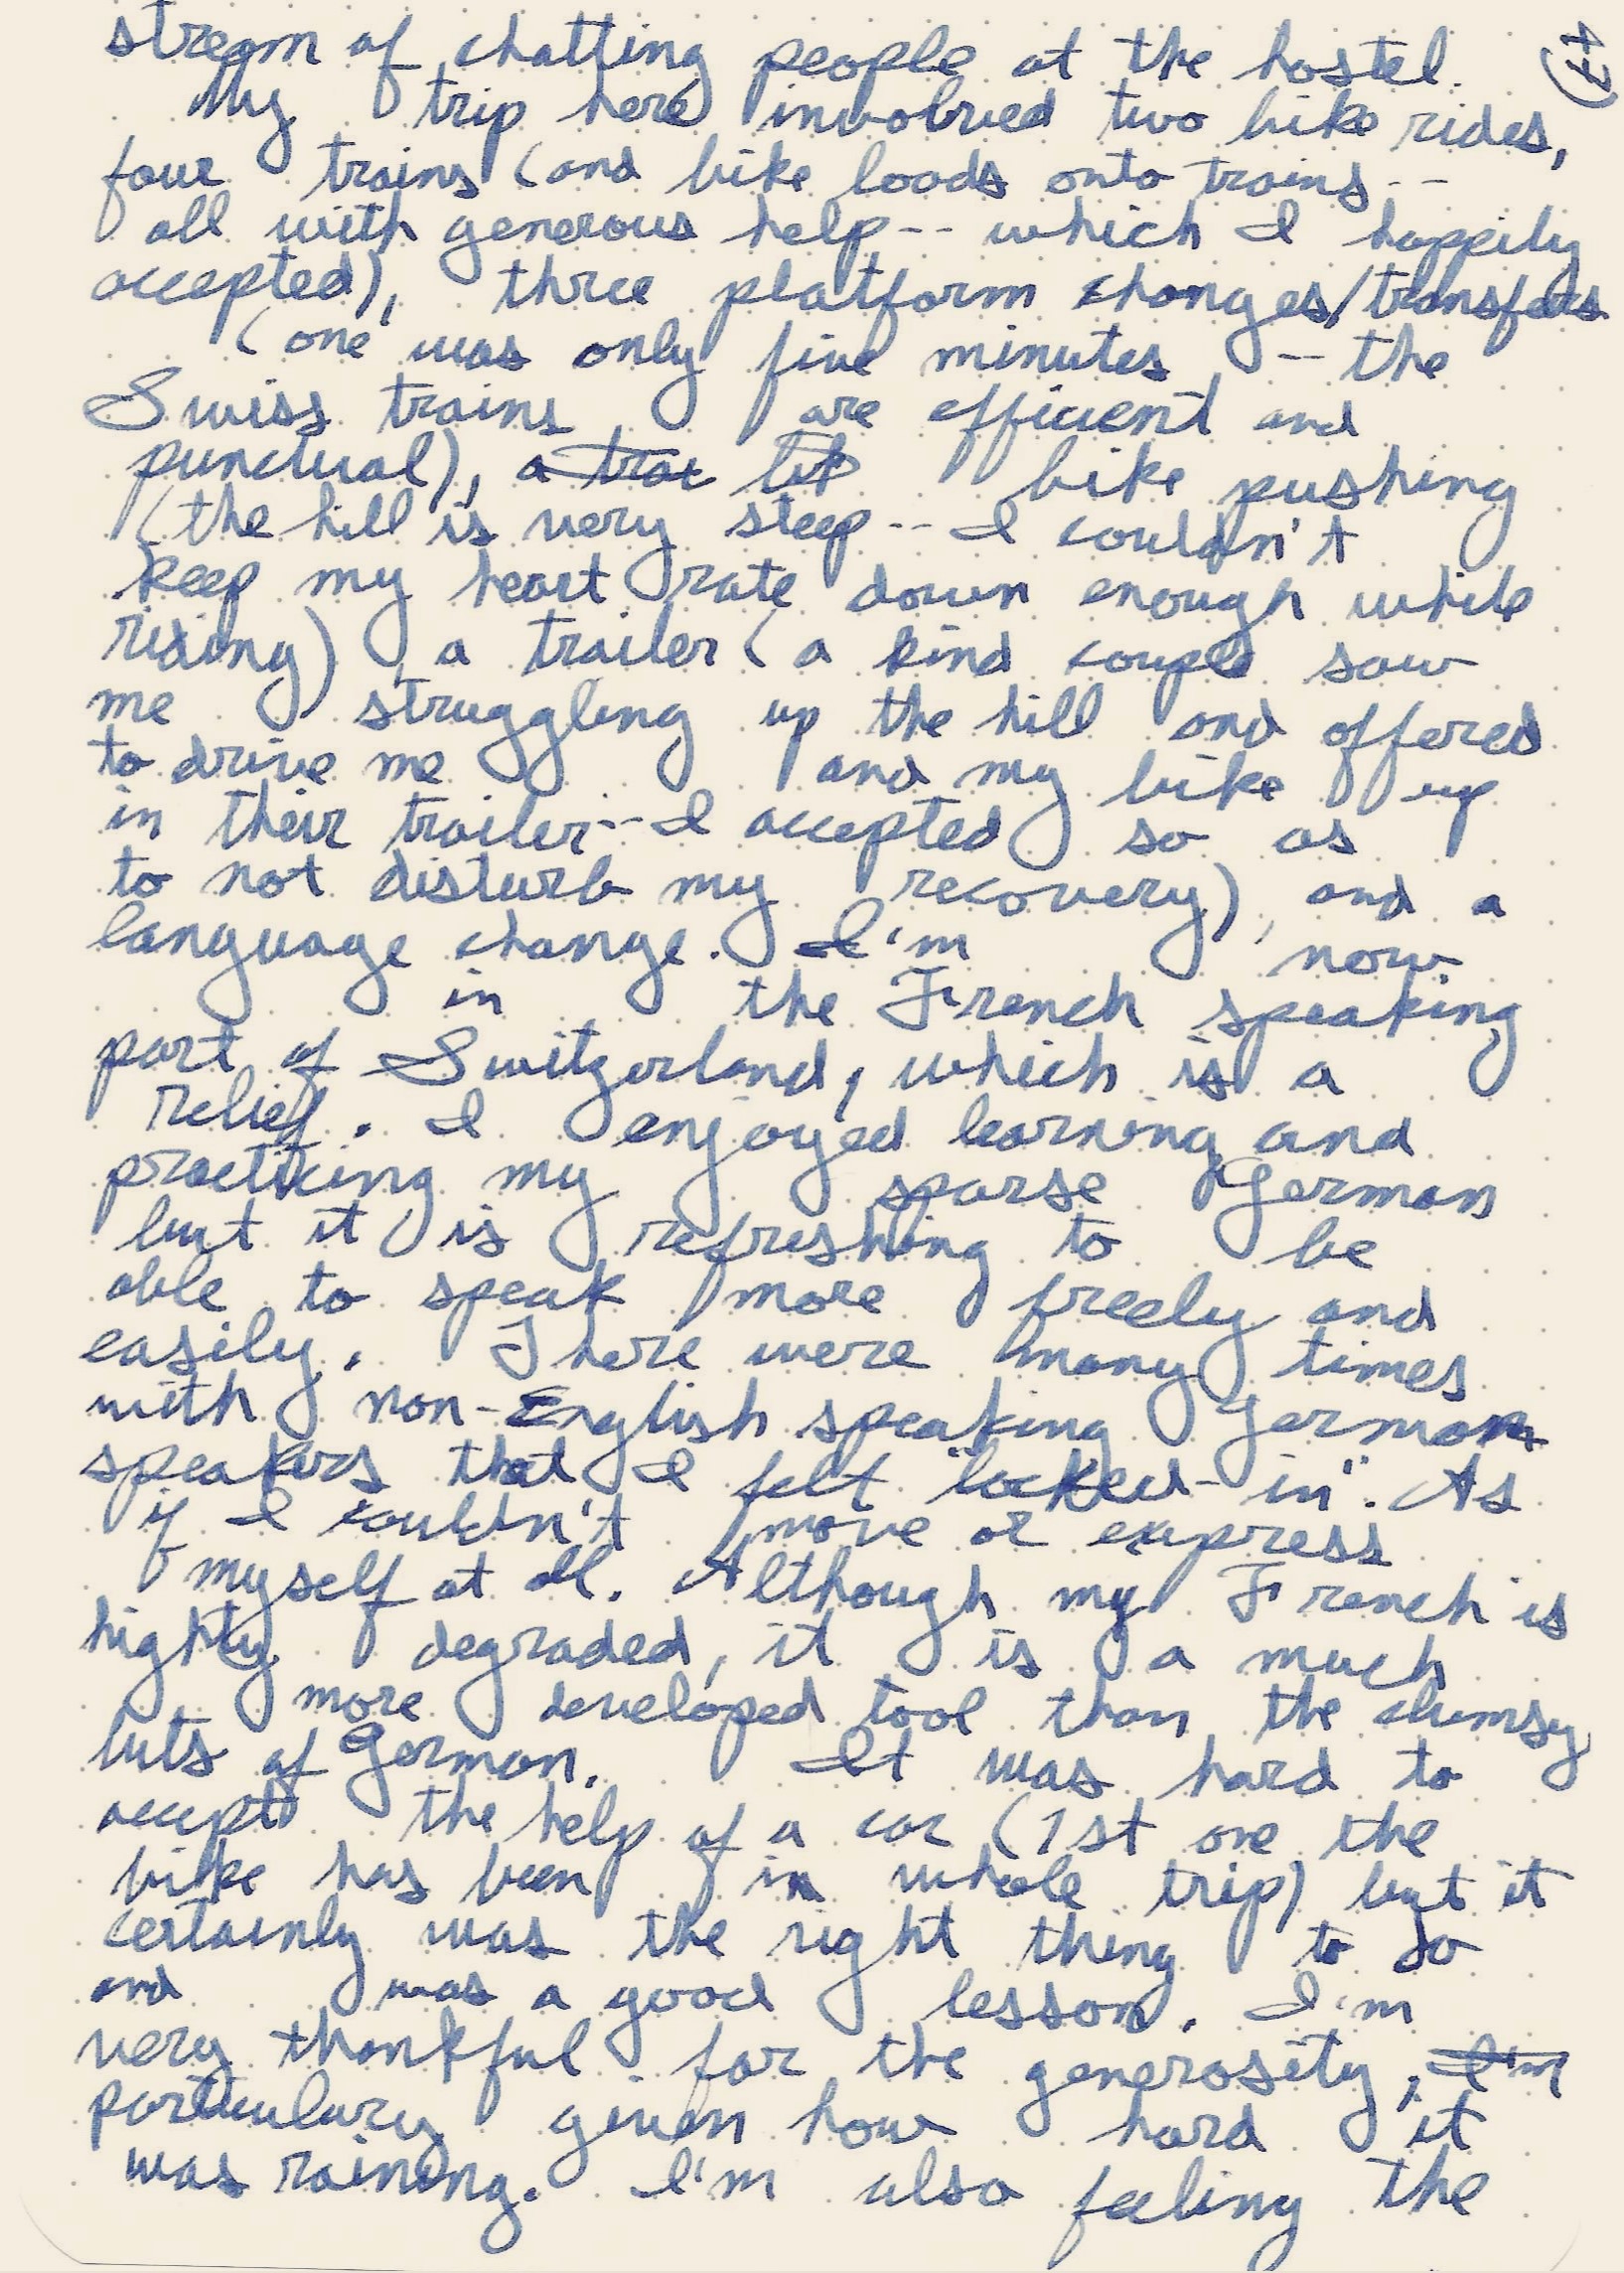 stream of chatting people at the hostel.
My trip here involved two bike rides,
four trains (and bike loads onto trains--
all with generous help-- which I happily
accepted), three platform changes/transfers
(one was only five minutes -- the
Swiss trains are efficient and
punctual), a bike pushing
(the hill is very steep -- I couldn't
keep my heart rate down enough while
riding), a trailer (a kind couple saw
me struggling up the hill and offered
to drive me and my bike up
in their trailer -- I accepted so as
to not disturb my recovery), and a
language change. I'm now
in the French speaking
part of Switzerland, which is a
relief. I enjoyed learning and
practicing my sparse German
but it is refreshing to be
able to speak more freely and
easily. There were many times
with non-English speaking German
speakers that I felt "locked-in". As
if I couldn't move or express
myself at all. Although my French is
highly degraded, it is a much
more developed tool than the clumsy
bits of German. It was hard to
accept the help of a car (1st one the
bike has been in whole trip) but it
certainly was the right thing to do
and was a good lesson. I'm
very thankful for the generosity, I'm
particulary given how hard it
was raining. I'm also feeling the